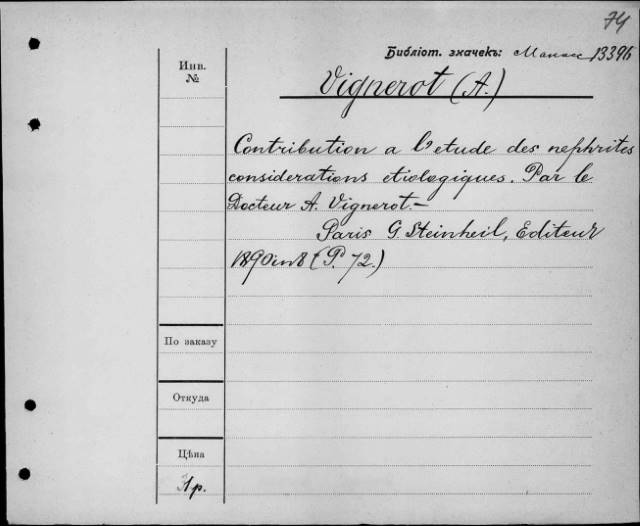 74
Библіот. значекъ: Манасс 13396
Инв.
№
Vignerot (A.)
Contribution a l'etude des nephrites
considerations etiologiques. Par le
Docteur A. Vignerot.—
Paris G. Steinheil, Editeur
1890 in 8 (P. 72.)
По заказу
Откуда
Цѣна
1р.